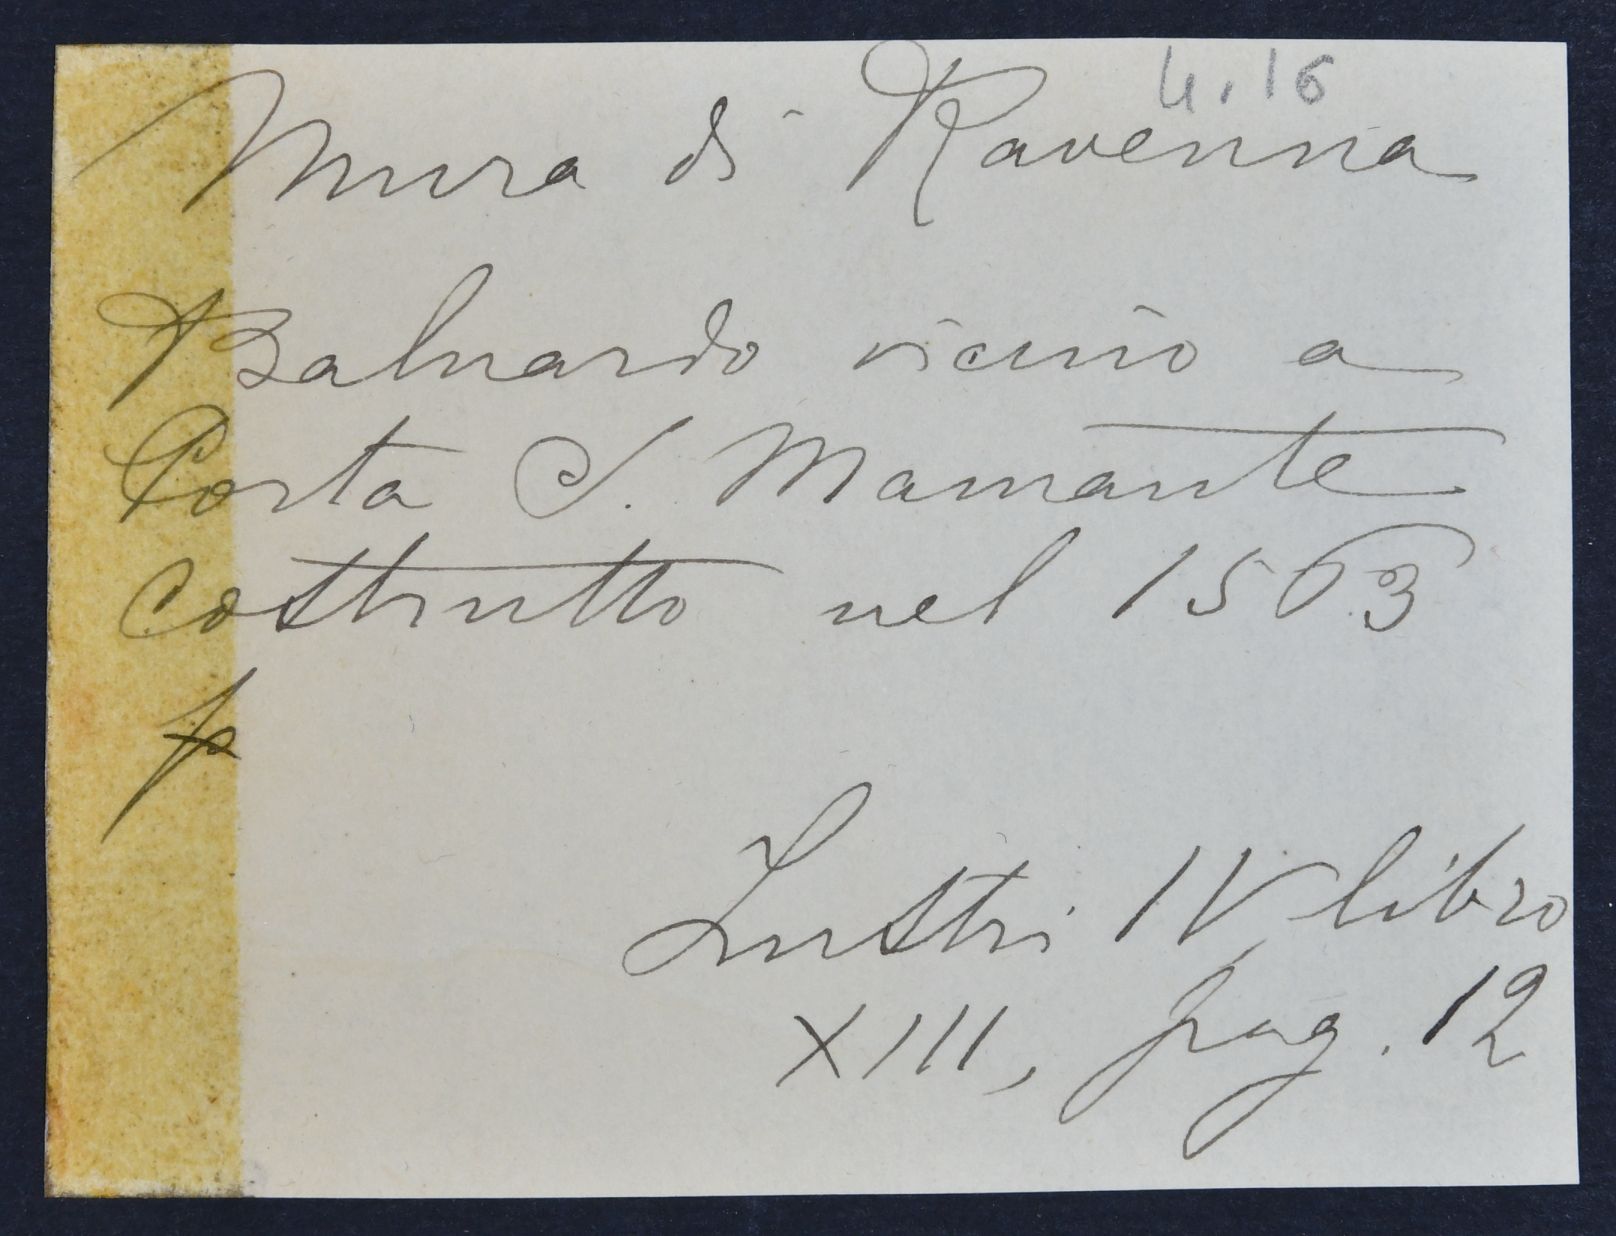 4.16
Mura di Ravenna
Baluardo vicino a
Porta S. Mamante
costrutto nel 1503
Lustri IV, libro
XIII, pag. 12